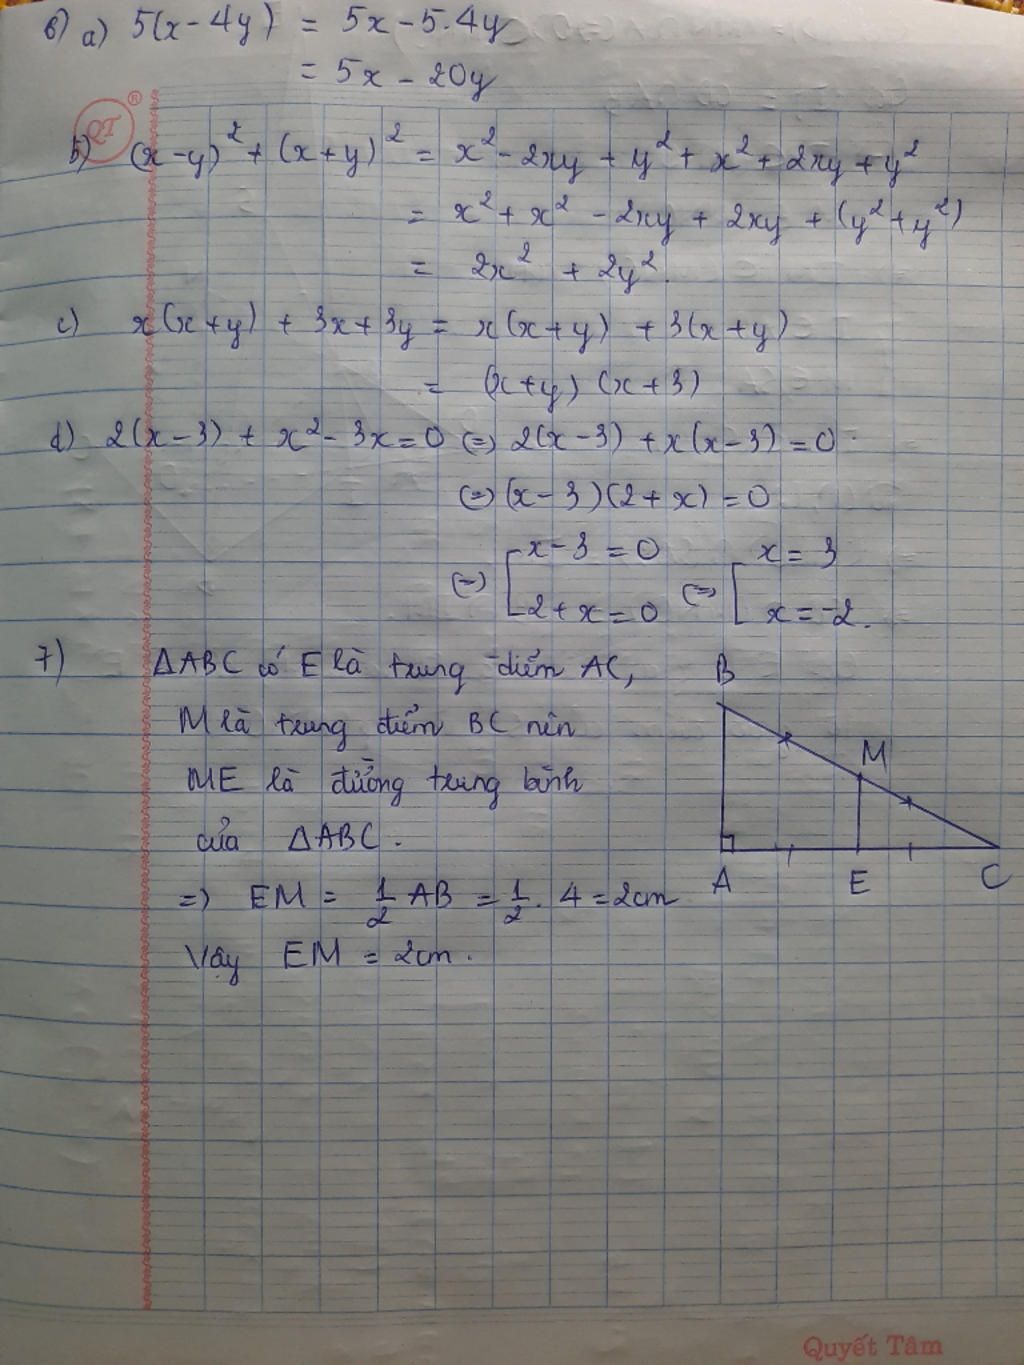 6) a) 5(x - 4y) = 5x - 5.4y
= 5x - 20y
QT ®
b) (x - y)² + (x + y)² = x² - 2xy + y² + x² + 2xy + y²
= x² + x² - 2xy + 2xy + (y² + y²)
= 2x² + 2y².
c) x(x + y) + 3x + 3y = x(x + y) + 3(x + y)
= (x + y) (x + 3)
d) 2(x - 3) + x² - 3x = 0 (=) 2(x - 3) + x(x - 3) = 0.
(=) (x - 3)(2 + x) = 0
(=) [ x - 3 = 0 (=) [ x = 3
2 + x = 0 x = -2.
7) ΔABC có E là trung điểm AC,
M là trung điểm BC nên
ME là đường trung bình
của ΔABC.
=) EM = 1/2 AB = 1/2 . 4 = 2cm
Vậy EM = 2cm.
B
M
A E C
Quyết Tâm